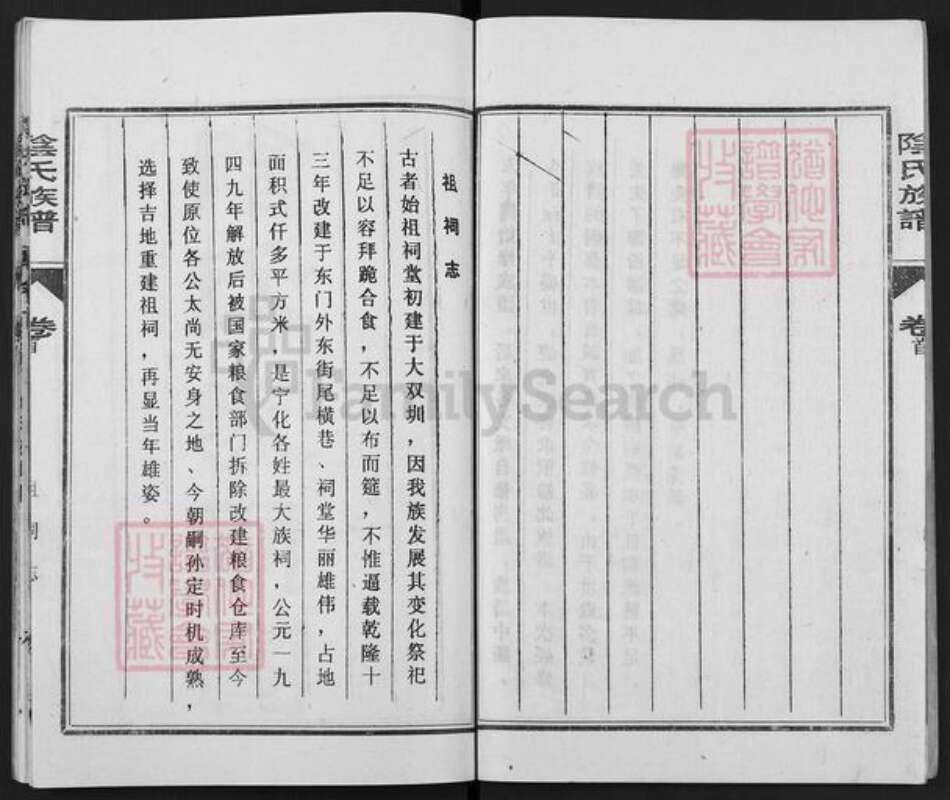 陰氏族譜
卷首
祖祠志
古者始祖祠堂初建于大双圳，因我族发展其变化祭祀
不足以容拜跪合食，不足以布而筵，不惟逼载乾隆十
三年改建于东门外东街尾横巷、祠堂华丽雄伟，占地
面积式仟多平方米，是宁化各姓最大族祠，公元一九
四九年解放后被国家粮食部门拆除改建粮食仓库至今
致使原位各公太尚无安身之地、今朝嗣孙定时机成熟，
选择吉地重建祖祠，再显当年雄姿。
陰氏族譜
卷首
祖祠志
FamilySearch